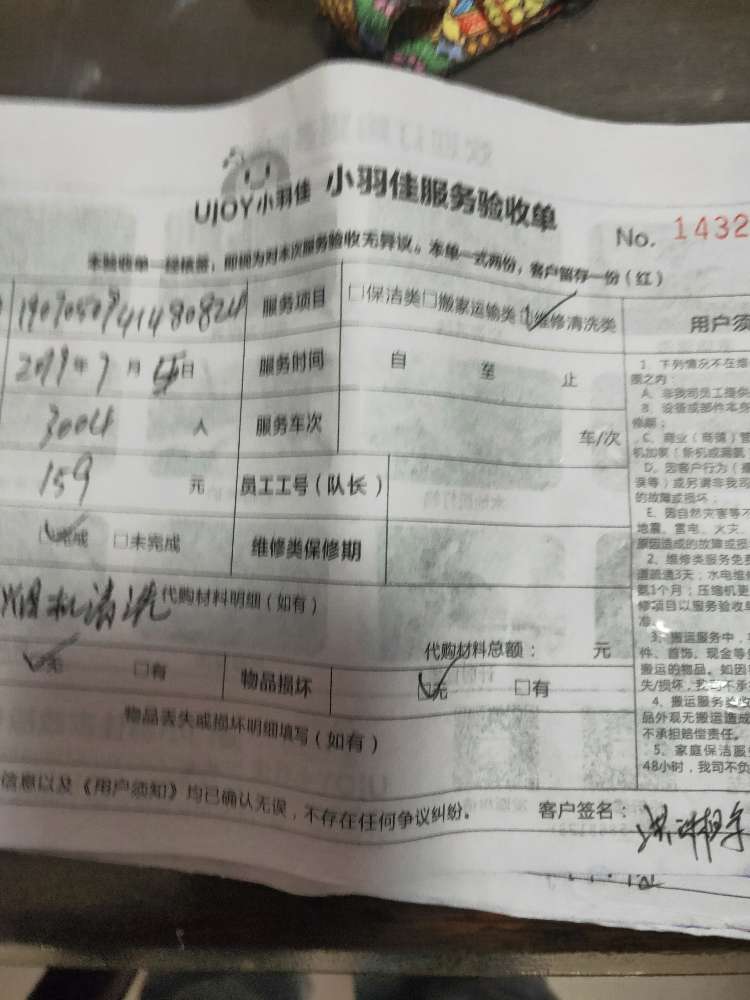 UJOY小羽佳 小羽佳服务验收单
No. 1432
本验收单一经核签，即视为对本次服务验收无异议。本单一式两份，客户留存一份（红）
服务项目 □保洁类□搬家运输类□维修清洗类 用户须
年 月 日 服务时间 自 至 止
人 服务车次 车/次
159 元 员工工号（队长）
□完成 □未完成 维修类保修期
烟机清洗 代购材料明细（如有）
代购材料总额： 元
□无 □有 物品损坏 □无 □有
物品丢失或损坏明细填写（如有）
信息以及《用户须知》均已确认无误，不存在任何争议纠纷。 客户签名：
1、下列情况不在维
围之内：
A、非我司员工提供
B、设备或部件本身
修期；
C、商业（商铺）管
机加氨（新机或漏氨
D、因客户行为（搬
误等）或另请非我司
的故障或损坏；
E、因自然灾害等不
地震、雷电、火灾、
原因造成的故障或损
2、维修类服务免费
道疏通3天；水电维修
氨1个月；压缩机更
修项目以服务验收单
准。
3、搬运服务中，
件、首饰、现金等
搬运的物品。如因
失/损坏，我司不承
4、搬运服务验收
品外观无搬运造成
不承担赔偿责任。
5、家庭保洁服
48小时，我司不负